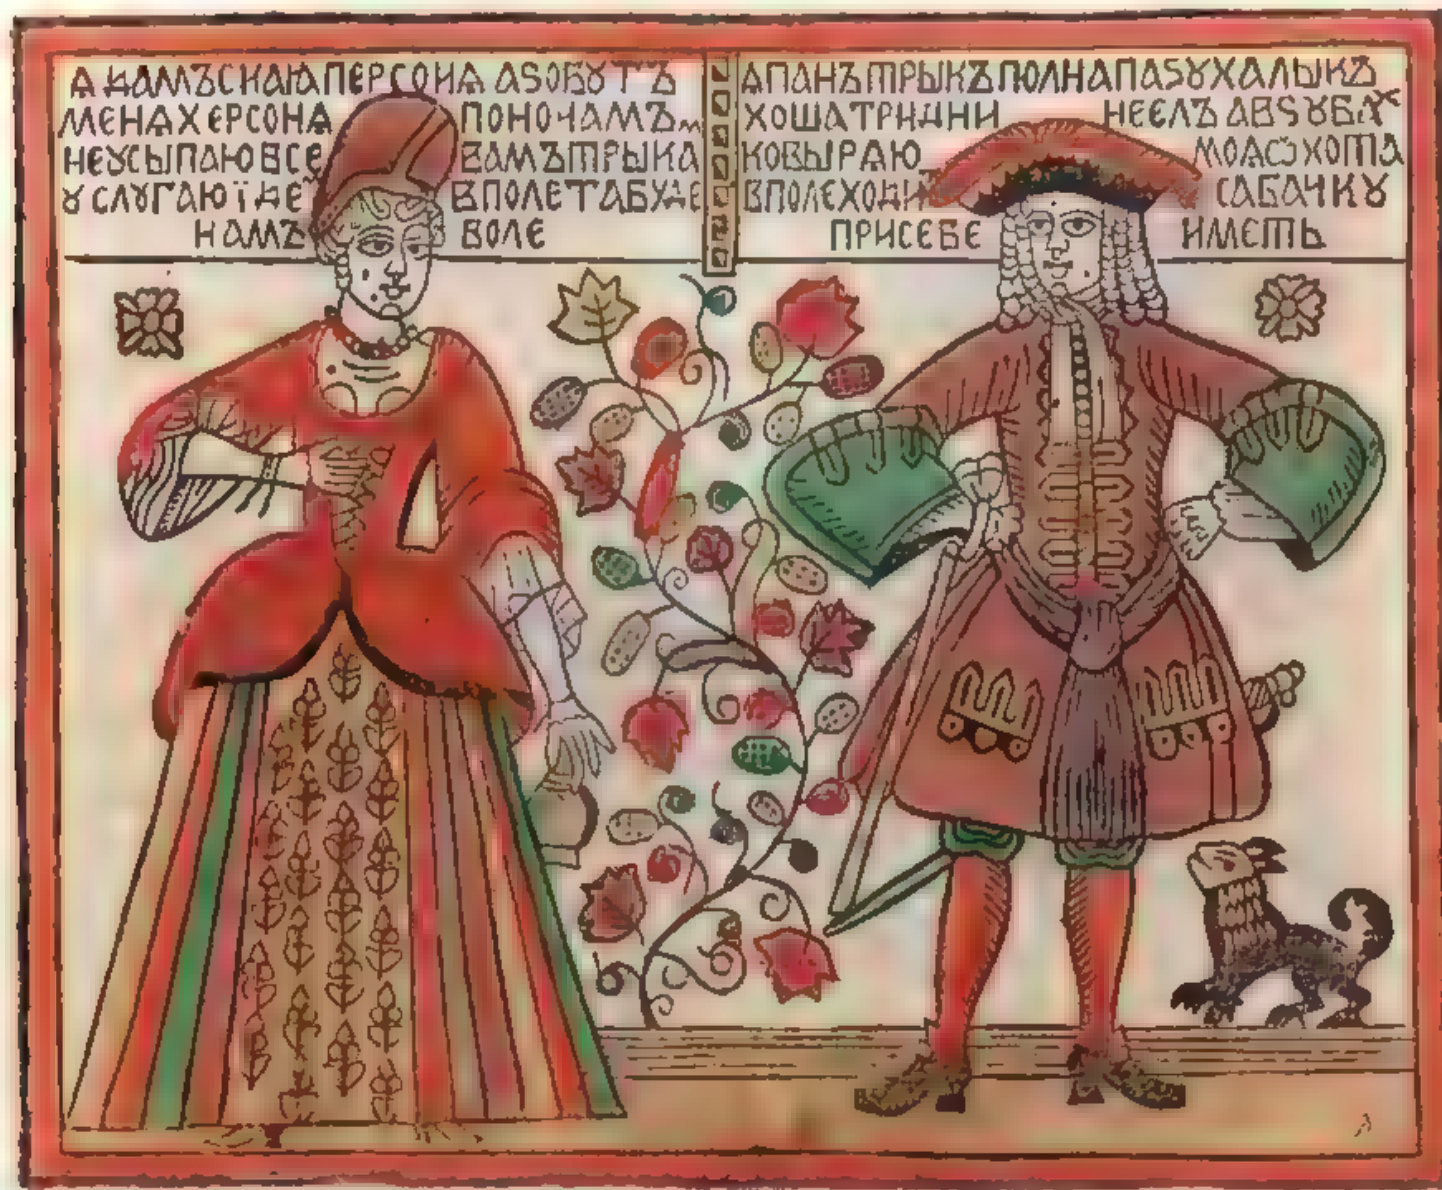 Ѧ ДАМЪСКАЮ ПЕРСОНѦ АЅОВУТЪ
МЕНѦ ХЕРСОНѦ ПОНОЧАМЪ
НЕꙋСЫПАЮ ВСЕ ВАМЪ ТРЫКА
ꙋСЛꙋГАЮ ЇДЕ В ПОЛЕ ТА БУДЕ
НАМЪ ВОЛЕ
А ПАНЪ ТРЫКЪ ПОЛНА ПАЅꙋХА ЛЫКЪ
ХОША ТРИ ДНИ НЕ ЕЛЪ А В ЅꙋБАХ
КОВЫРАЮ МОА ѾХОТА
В ПОЛЕ ХОДИТ САБАЧКꙋ
ПРИ СЕБЕ ИМЕТЬ